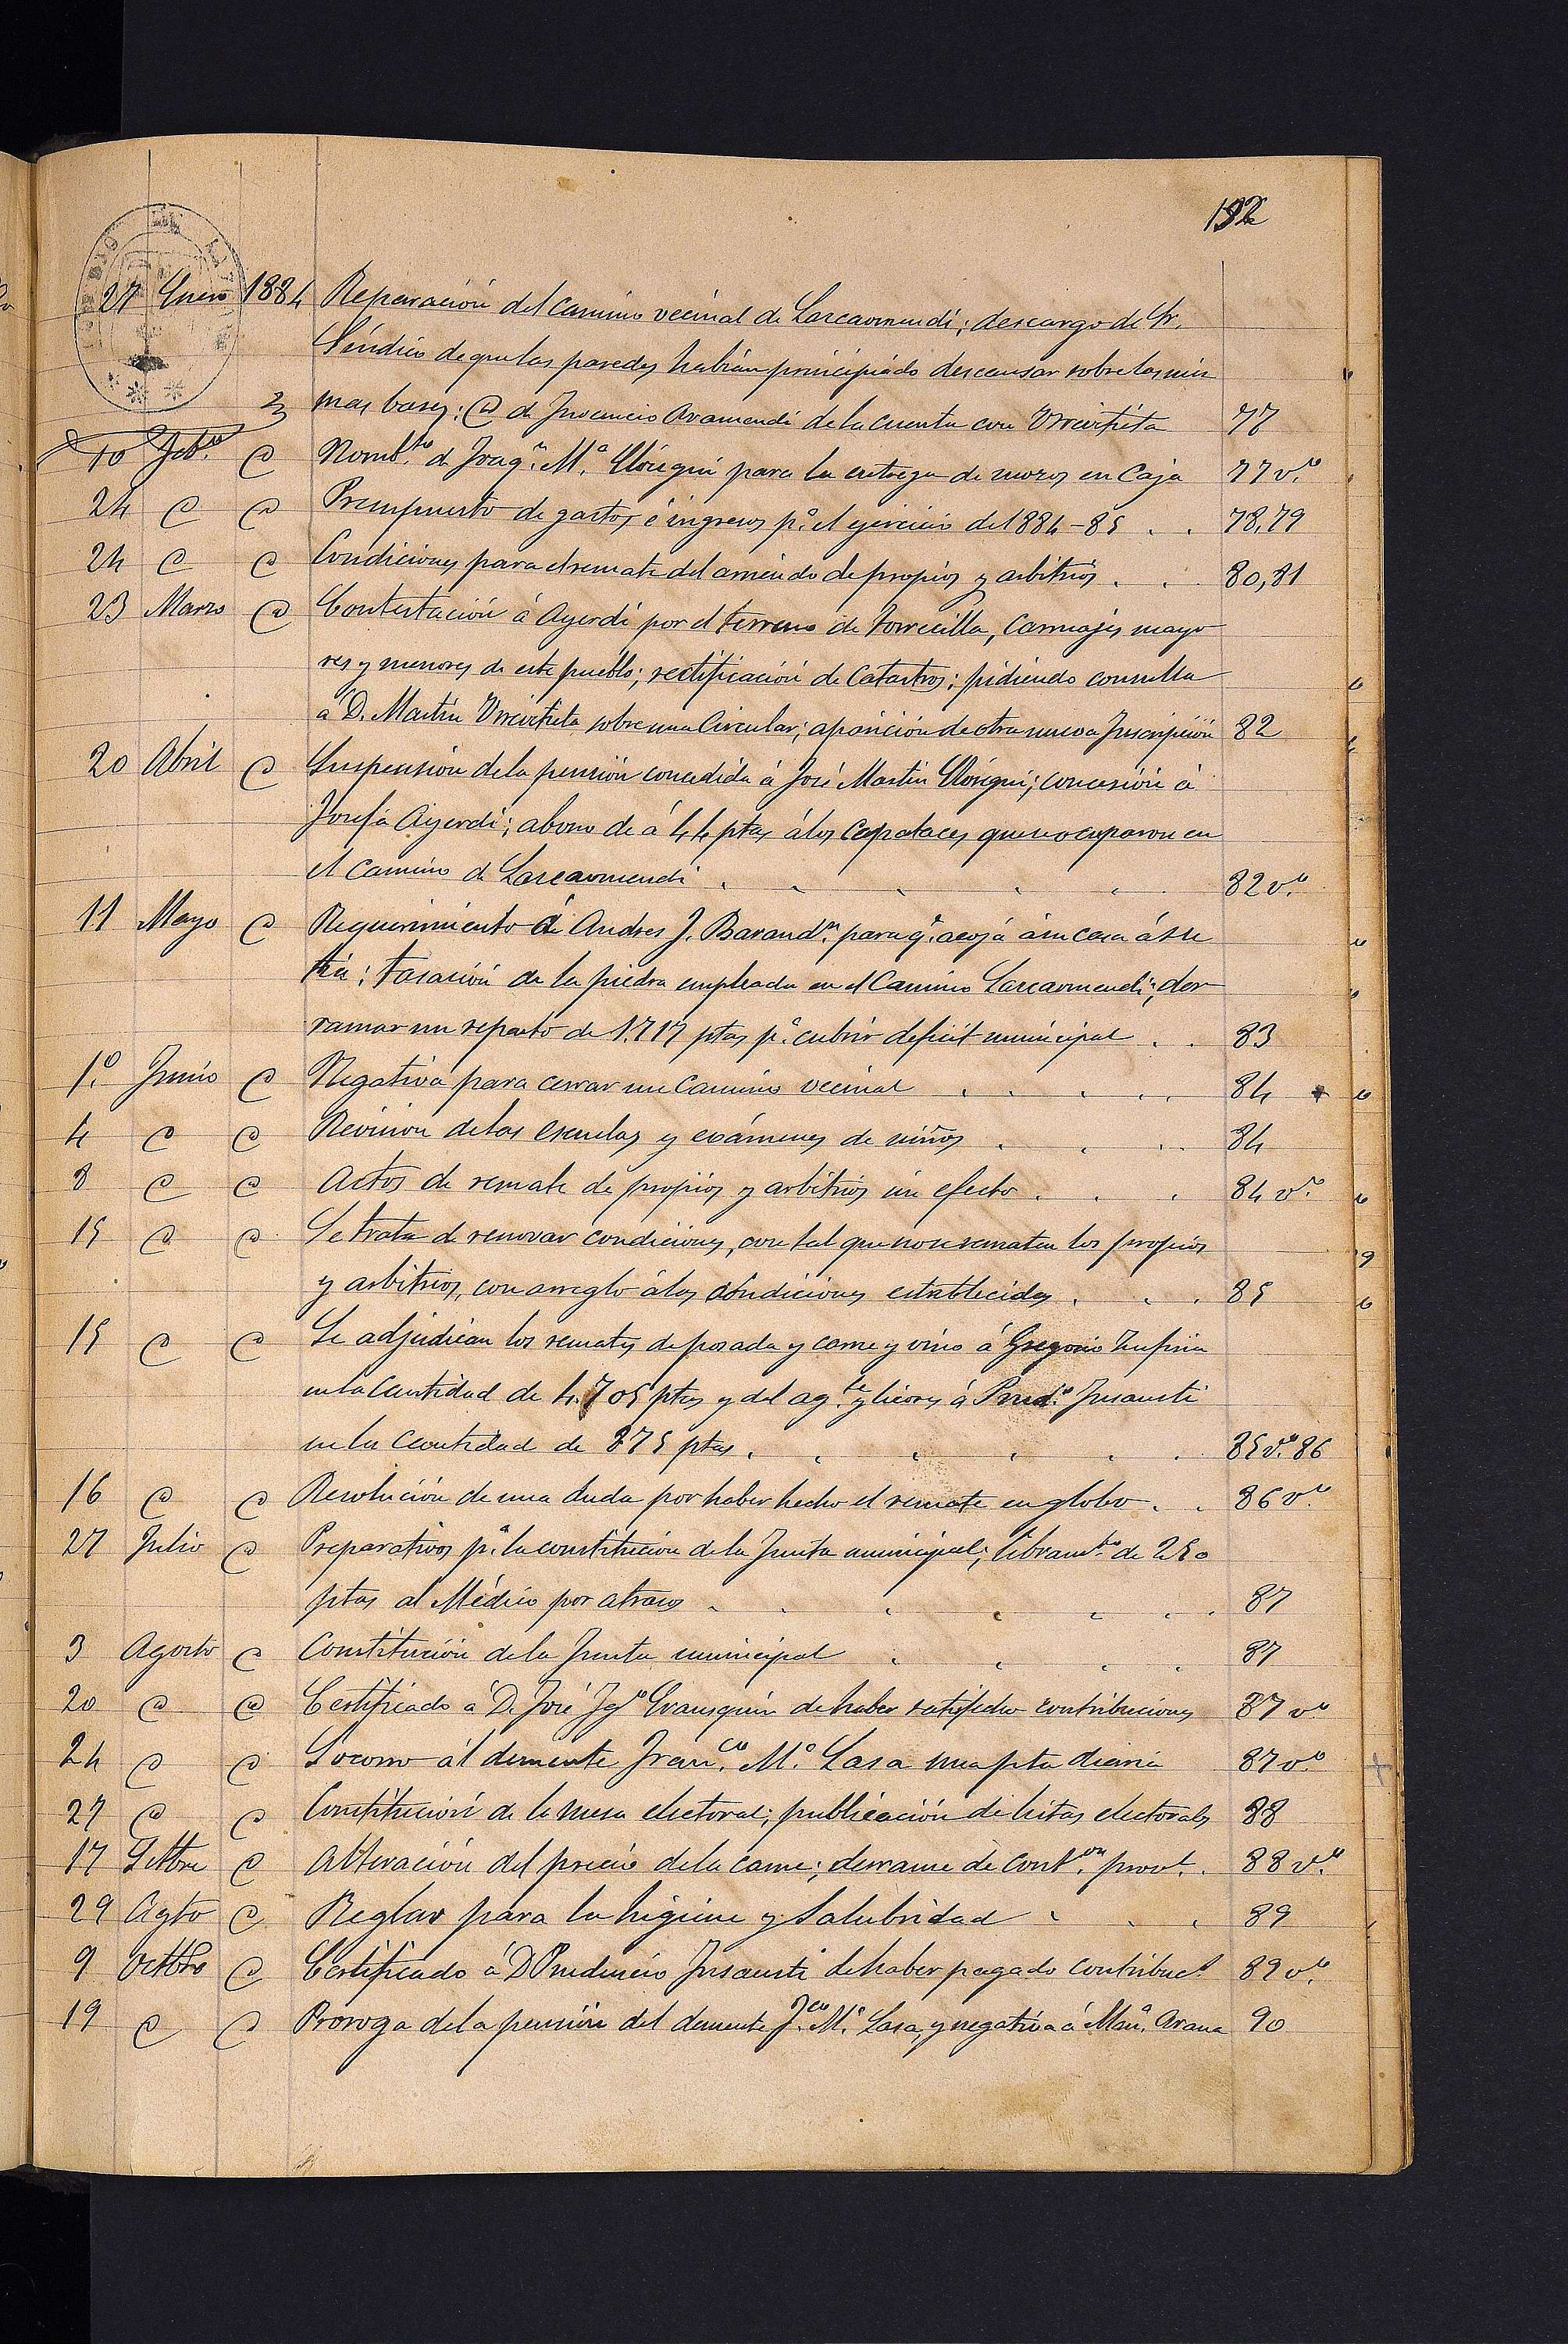 192
27 Enero 1884 Reparación del camino vecinal de Larcaomendi; descargo del Sr.
Síndico de que las paredes habían principiado descansar sobre las mis
mas bases: @ de Inocencio Aramendi de la cuenta con Urruitieta 77
10 Febº @ Nombto de Joaqn Mª Elósegui para la entrega de mozos en Caja 77 vto
24 @ @ Presupuesto de gastos é ingresos pª el ejercicio de 1884-85 . . 78,79
24 @ @ Condiciones para el remate del arriendo de propios y arbitrios . . 80,81
23 Marzo @ Contestación á Ayerdi por el terreno de torrecilla, carruajes mayo
res y menores de este pueblo; rectificación de Catastros; pidiendo consulta
á D. Martin sobre una Circular; aparición de otra nueva Inscripción 82
20 Abril @ Suspensión de la pensión concedida á José Martin Elósegui; concesión á
Josefa Ayerdi; abono de á 44 ptas á los Capataces que se ocuparon en
el Camino de Larcaomendi 82 vto
11 Mayo @ Requerimiento á Andres J. Barandn para q. acojá á su casa á su
tia; tasación de la piedra empleada en el Camino Larcaomendi; der
ramar un reparto de 1.717 ptas pª cubrir deficit municipal . . 83
1º Junio @ Negativa para cerrar un Camino vecinal 84
4 @ @ Revision de las escuelas y exámenes de niños 84
8 @ @ Actos de remate de propios y arbitrios sin efecto 84 vto
15 @ @ Se trata de renovar condiciones, con tal que no se rematen los propios
y arbitrios, con arreglo á las condiciones establecidas 85
15 @ @ Se adjudican los remates de posada y carne y vino á Gregorio Zufiria
en la Cantidad de 4.705 ptas y del agte y licores á Prudº Insausti
en la Cantidad de 875 ptas 85 vto 86
16 @ @ Resolución de una duda por haber hecho el remate en globo . . 86 vto
27 Julio @ Preparativos pª la constitución de la Junta municipal; libramto de 250
ptas al Médico por atrasos 87
3 Agosto @ Constitución de la Junta municipal 87
20 @ @ Certificado á D. José Igº Erausquin de haber satisfecho contribuciones 87 vto
24 @ @ Socorro al demente Franco Mº Lasa una pta diaria 87 vto
27 @ @ Constitución de la mesa electoral; publicación de listas electorales 88
17 Setbre @ Alteración del precio de la carne; derrame de conton provl. 88 vto
29 Agto @ Reglas para la higiene y Salubridad 89
9 Octbre @ Certificado á D. Prudencio Insausti de haber pagado contribucs 89 vto
19 @ @ Proroga de la pensión del demente Fco Mº Lasa, y negativa á Manª Arana 90